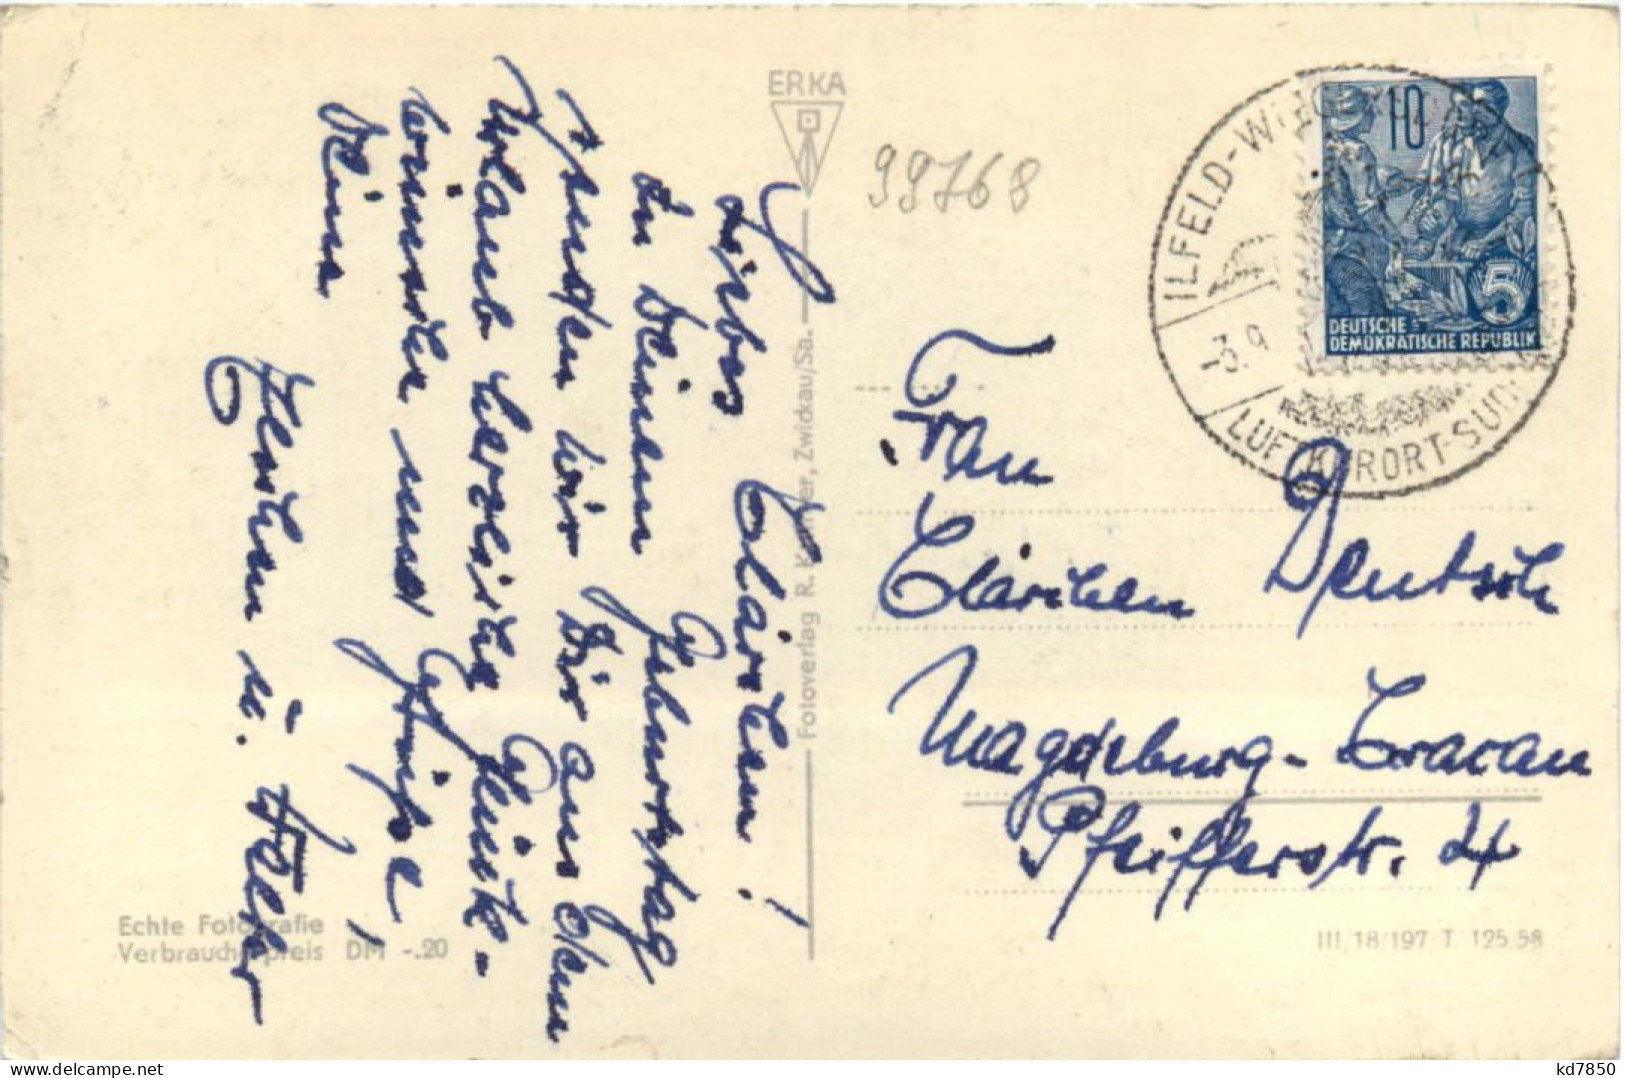 Liebes Clärchen!
Zu Deinem Geburtstag
senden wir Dir aus dem
Urlaub herzliche Glück-
wünsche und Grüße,
Deine
u.
ERKA
Fotoverlag R. K er, Zwickau/Sa.
99768
10
5
DEUTSCHE
DEMOKRATISCHE REPUBLIK
ILFELD-
-3. 9
LUFTKURORT-SÜD
Frau
Clärchen Deutsch
Magdeburg-Cracau
Pfeifferstr. 24
Echte Fotografie
Verbraucherpreis DM -.20
III, 18/197 T. 125 58
kd7850